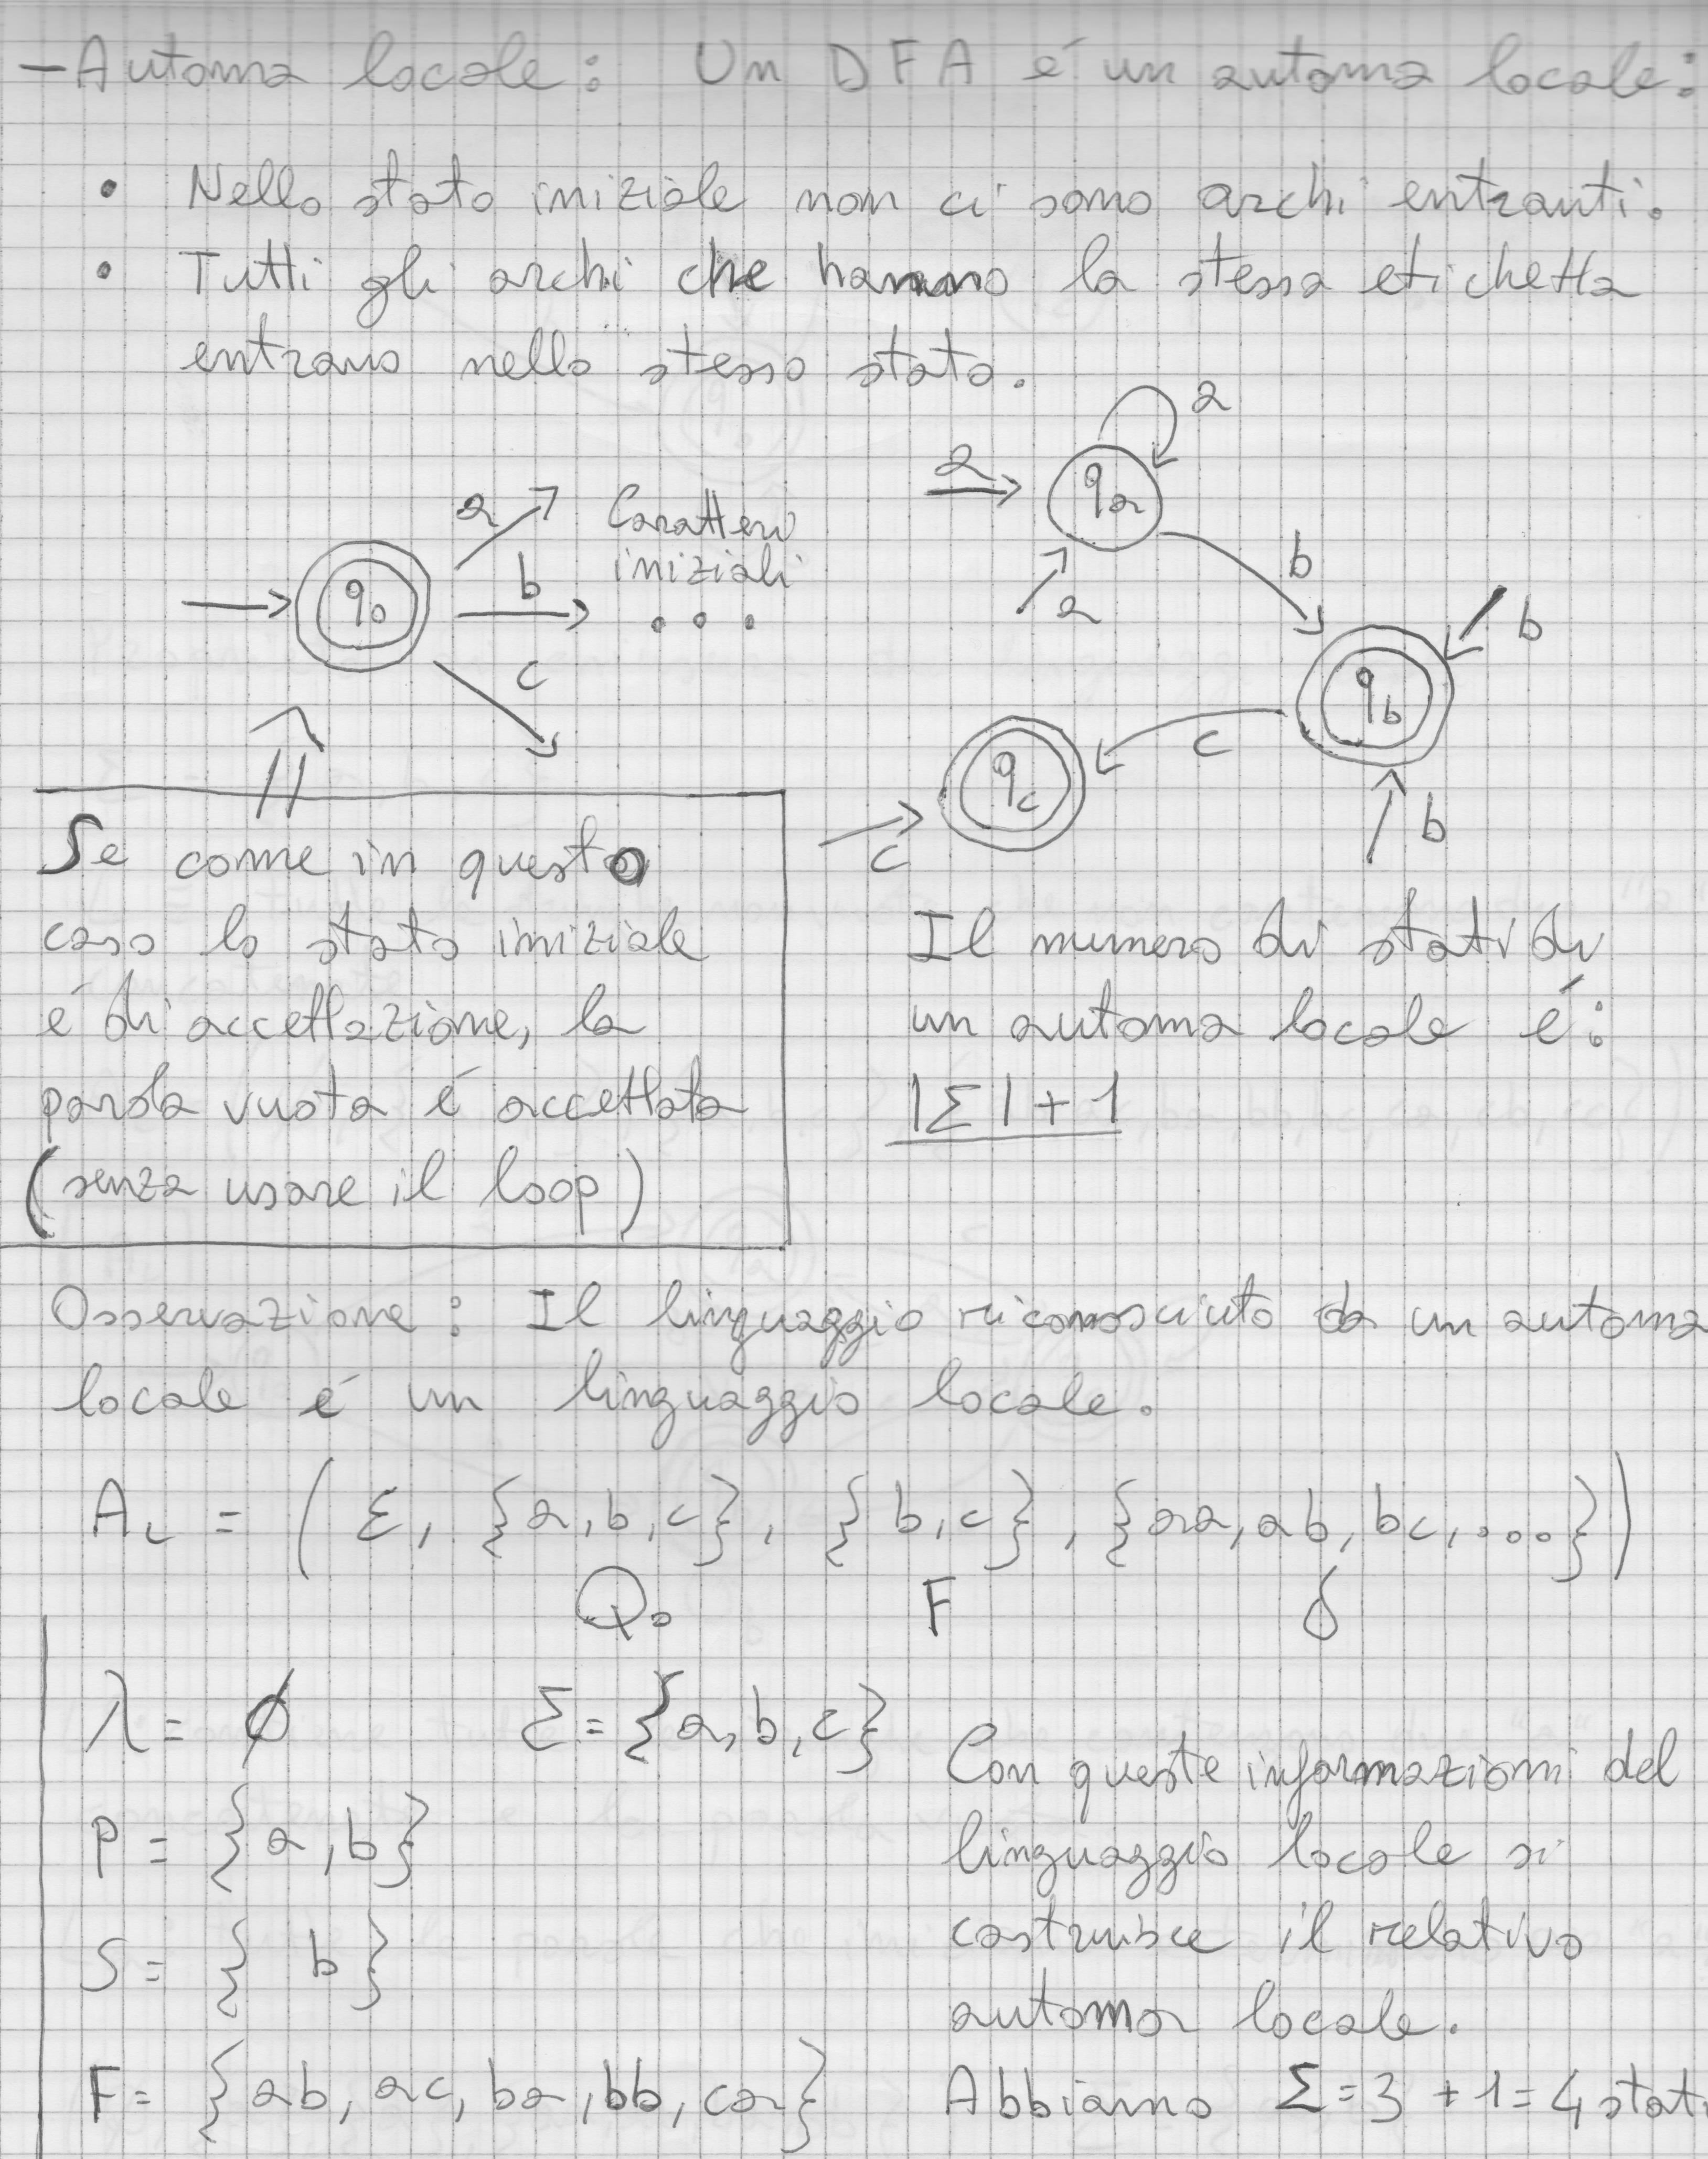 - Automa locale: Un DFA é un automa locale:
• Nello stato iniziale non ci sono archi entranti.
• Tutti gli archi che hanno la stessa etichetta
entrano nello stesso stato.
q0
a
b
c
Caratteri
iniziali
...
a
a
a
qa
b
b
b
qb
c
c
qc
Se come in questo
caso lo stato iniziale
é di accettazione, la
parola vuota é accettata
(senza usare il loop)
Il numero di stati di
un automa locale é:
|Σ| + 1
Osservazione: Il linguaggio riconosciuto da un automa
locale é un linguaggio locale.
AL = (ε, {a,b,c}, {b,c}, {aa, ab, bc, ...})
Q0 F δ
λ = ∅ Σ = {a, b, c}
P = {a, b}
S = { b}
F = {ab, ac, ba, bb, ca}
Con queste informazioni del
linguaggio locale si
costruisce il relativo
automa locale.
Abbiamo Σ=3 +1=4 stati